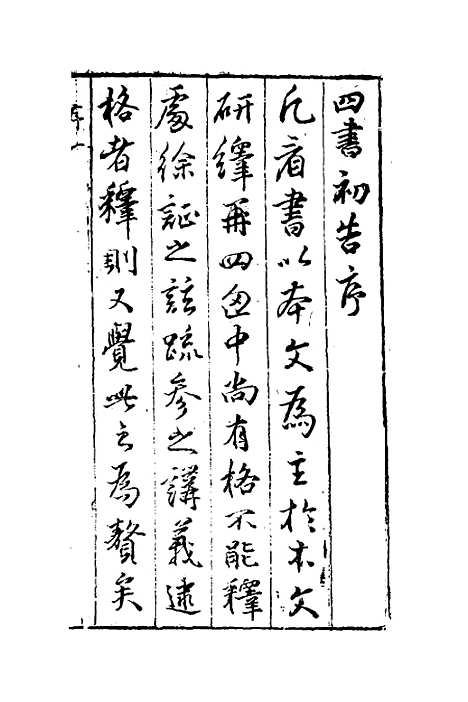 四書初告序
凡看書以本文為主於本文
研繹再四匈中尚有格不能釋
處徐証之註疏參之講義逮
格者釋則又覺此之為贅矣
序一